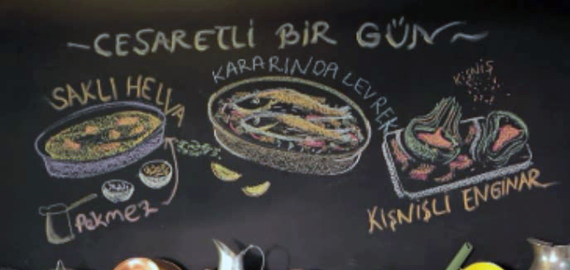 ~CESARETLİ BİR GÜN~
SAKLI HELVA
KARARINDA LEVREK
KişNiş
Pekmez
KIŞNIŞLI ENGINAR